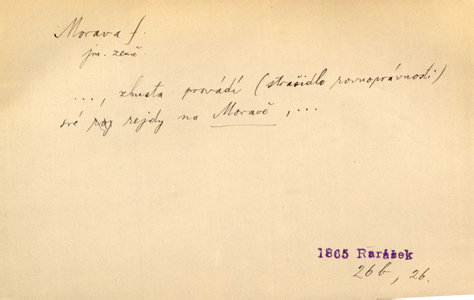 Morava f.
jm. země.
..., zhusta provádí (strašidlo rovnoprávnosti)
své rejdy na Moravě, ...
1865 Rarášek
26b, 26.